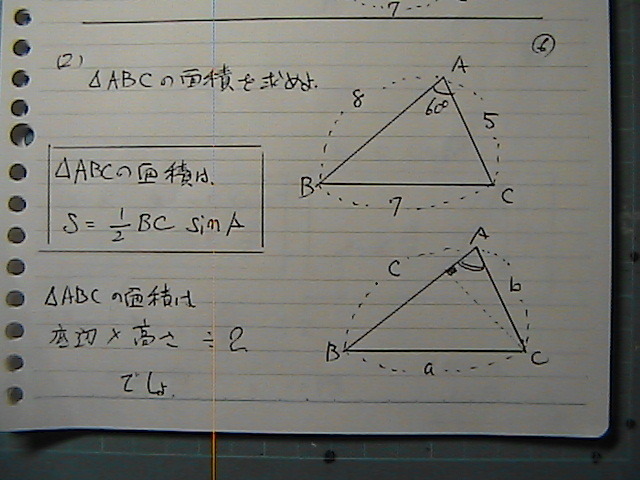 7
⑥
(2)
△ABCの面積を求めよ.
A
8
60°
5
B
7
C
△ABCの面積は、
S = 1/2 BC sin A
A
c
b
B
a
C
△ABCの面積は
底辺 × 高さ ÷ 2
でしょ.